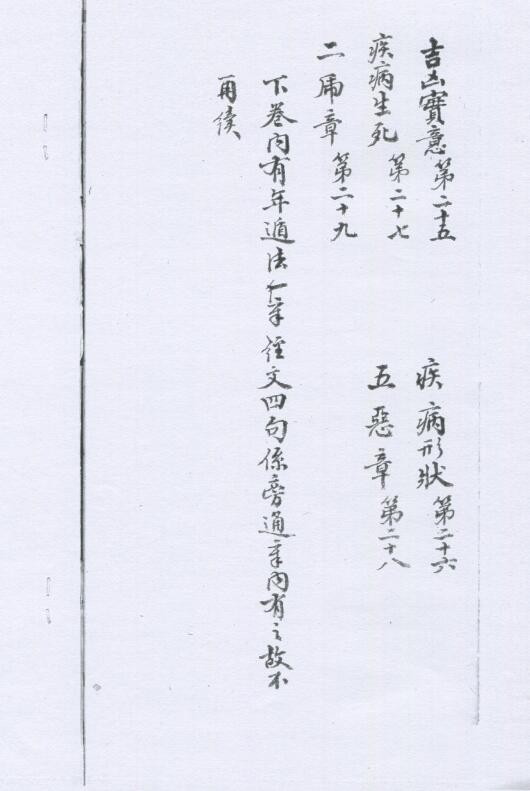 吉凶實意第二十五
疾病形狀第二十六
疾病生死第二十七
五惡章第二十八
二馬章第二十九
下卷內有年遁法一章經文四句係旁通章內有之故不
再續